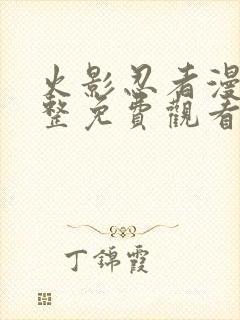 火影忍者漫
整免費觀看
丁錦霞